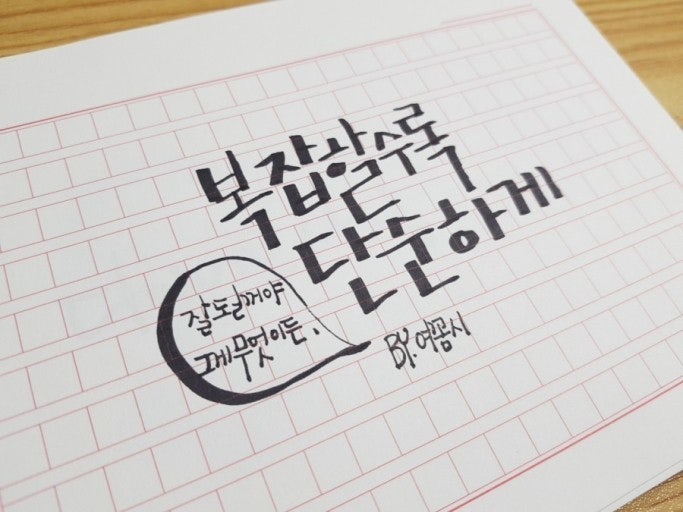 복잡할수록
단순하게
잘될꺼야
그게무엇이든.
BY.여곰시